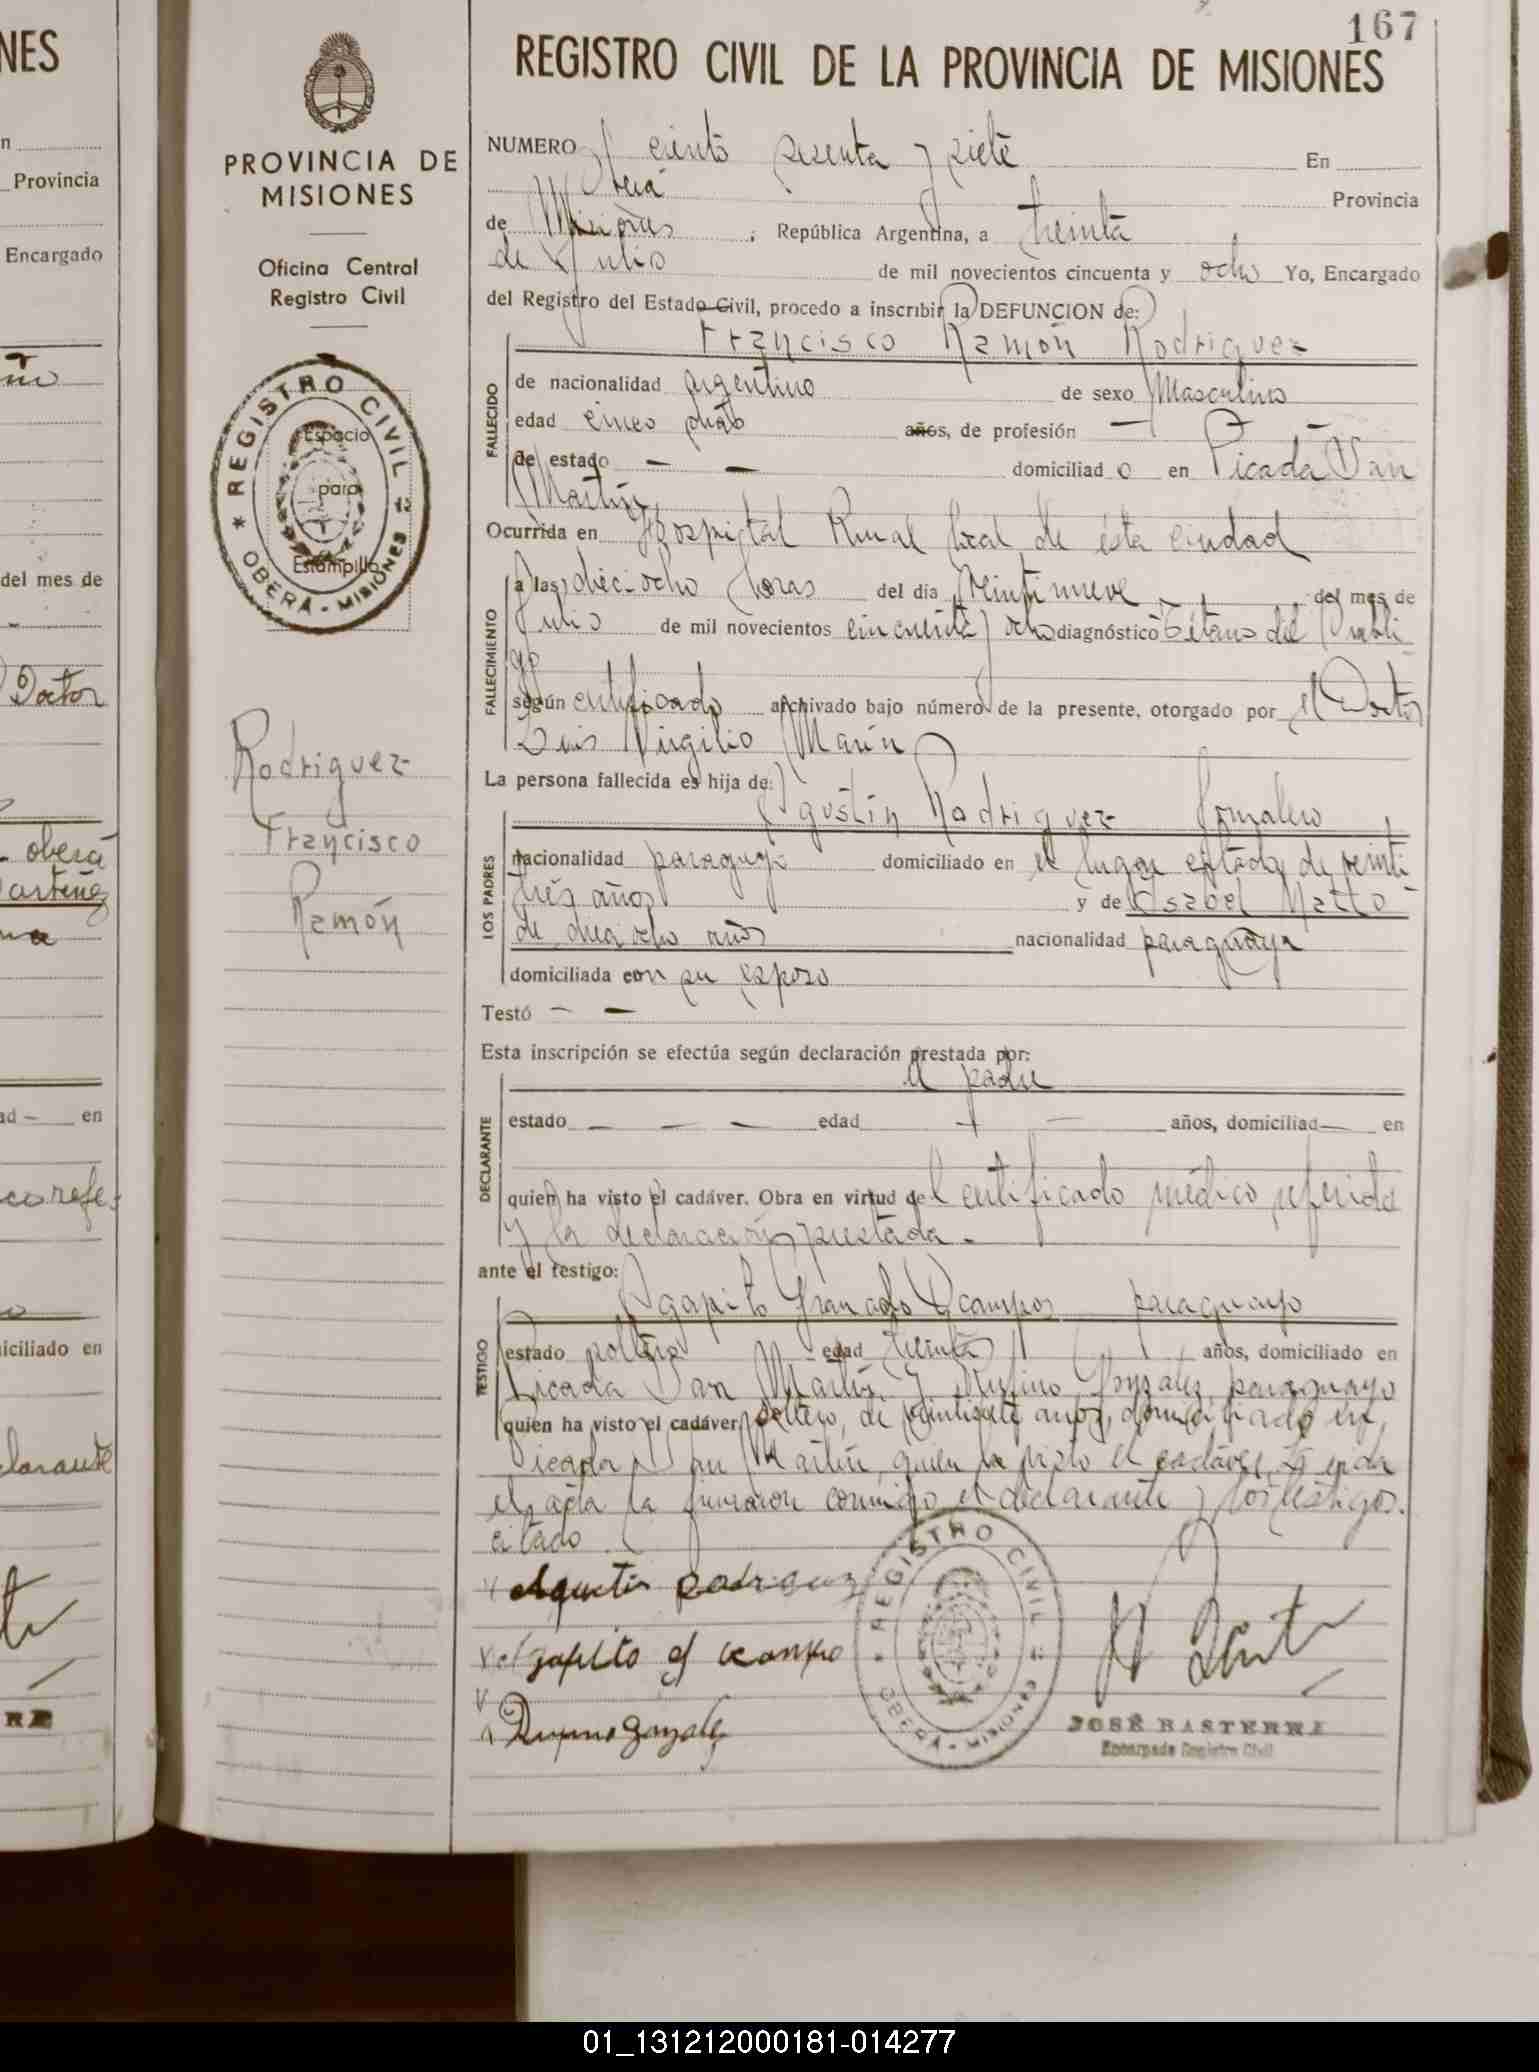 167
NES
REGISTRO CIVIL DE LA PROVINCIA DE MISIONES
PROVINCIA DE
MISIONES
Oficina Central
Registro Civil
REGISTRO CIVIL
OBERÁ - MISIONES
Espacio
para
Estampilla
Rodriguez
Francisco
Ramón
n
Provincia
Encargado
del mes de
Doctor
oberá
ad — en
iciliado en
larante
NUMERO ciento sesenta y siete En
Oberá Provincia
de Misiones ; República Argentina, a treinta
de Julio de mil novecientos cincuenta y ocho Yo, Encargado
del Registro del Estado Civil, procedo a inscribir la DEFUNCION de:
Francisco Ramón Rodriguez
FALLECIDO
de nacionalidad argentino de sexo Masculino
edad cinco dias años, de profesión —
de estado — — domiciliado en Picada San
Martín
Ocurrida en Hospital Rural local de ésta ciudad
FALLECIMIENTO
a las dieciocho horas del día veintinueve del mes de
Julio de mil novecientos cincuenta y ocho diagnóstico Tétano del Ombli-
go
según certificado archivado bajo número de la presente, otorgado por el Doctor
Luis Virgilio Marín
La persona fallecida es hija de:
LOS PADRES
Agustín Rodriguez Jornalero
nacionalidad paraguayo domiciliado en el lugar citado de veinti
trés años y de Isabel Matto
de dieciocho años nacionalidad paraguaya
domiciliada con su esposo
Testó — —
Esta inscripción se efectúa según declaración prestada por:
el padre
DECLARANTE
estado — — — edad — — años, domiciliad — en
quien ha visto el cadáver. Obra en virtud del certificado médico referido
y la declaración prestada.-
ante el testigo:
Agapito Granado Ocampos paraguayo
TESTIGO
estado soltero edad treinta años, domiciliado en
Picada San Martín y Rufino González, paraguayo
quien ha visto el cadáver soltero, de veintisiete años, domiciliado en
Picada San Martín, quien ha visto el cadáver. Leida
el acta la firmaron conmigo el declarante y los testigos.
citado
Agustin Rodriguez
Agapito G Ocampo
Rufino Gonzalez
REGISTRO CIVIL
OBERÁ - MISIONES
JOSÉ BASTERRA
Encargado Registro Civil
01_131212000181-014277